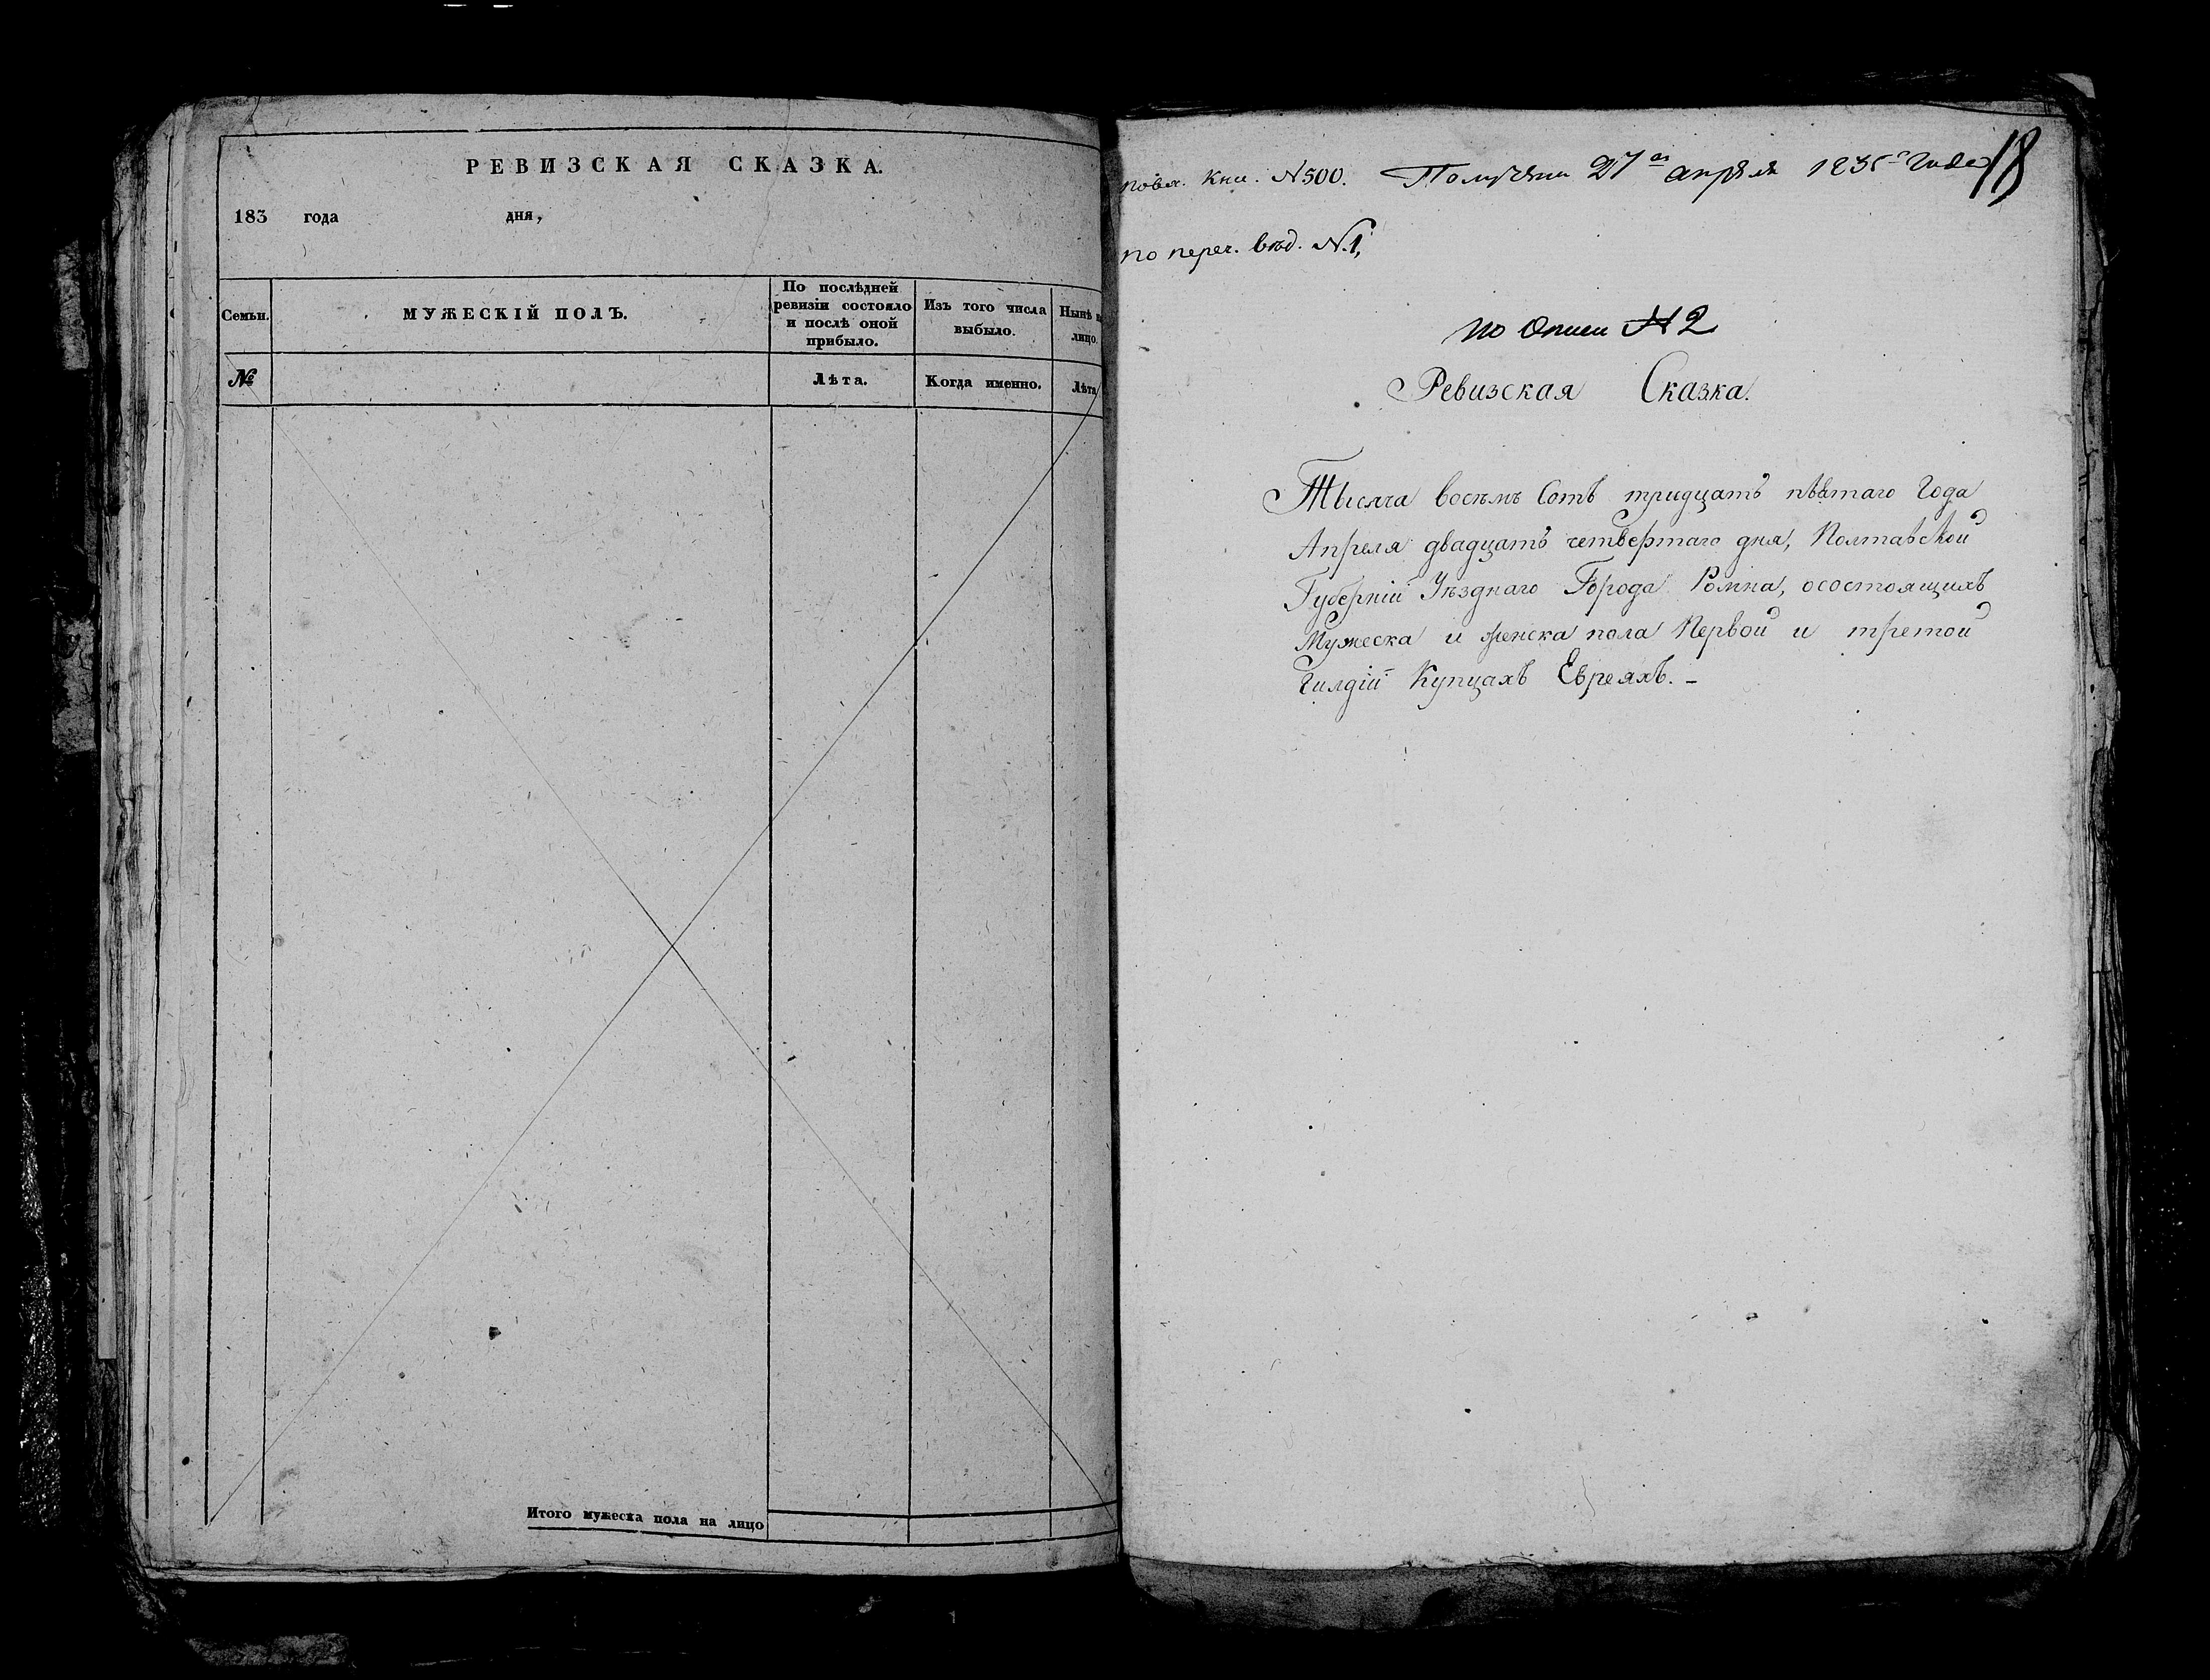 РЕВИЗСКАЯ СКАЗКА.
183 года дня,
Семьи.
МУЖЕСКІЙ ПОЛЪ.
По послѣдней
ревизіи состояло
и послѣ оной
прибыло.
Изъ того числа
выбыло.
Нынѣ на
лицо.
№
Лѣта.
Когда именно.
Лѣта
Итого мужеска пола на лицо
Кни. N 500. Получена 27го апрѣля 1835 года
18
по переч. вѣд. N.1,
по Описи N 2
Ревизская Сказка.
Тысяча восѣмъ Сотъ тридцать пѣтаго Года
Апреля двадцать четвертаго дня, Полтавской
Губерніи Уѣзднаго Города Ромна, осостоящихъ
Мужеска и женска пола Первой и третой
Гилдіи Купцахъ Евреяхъ. -